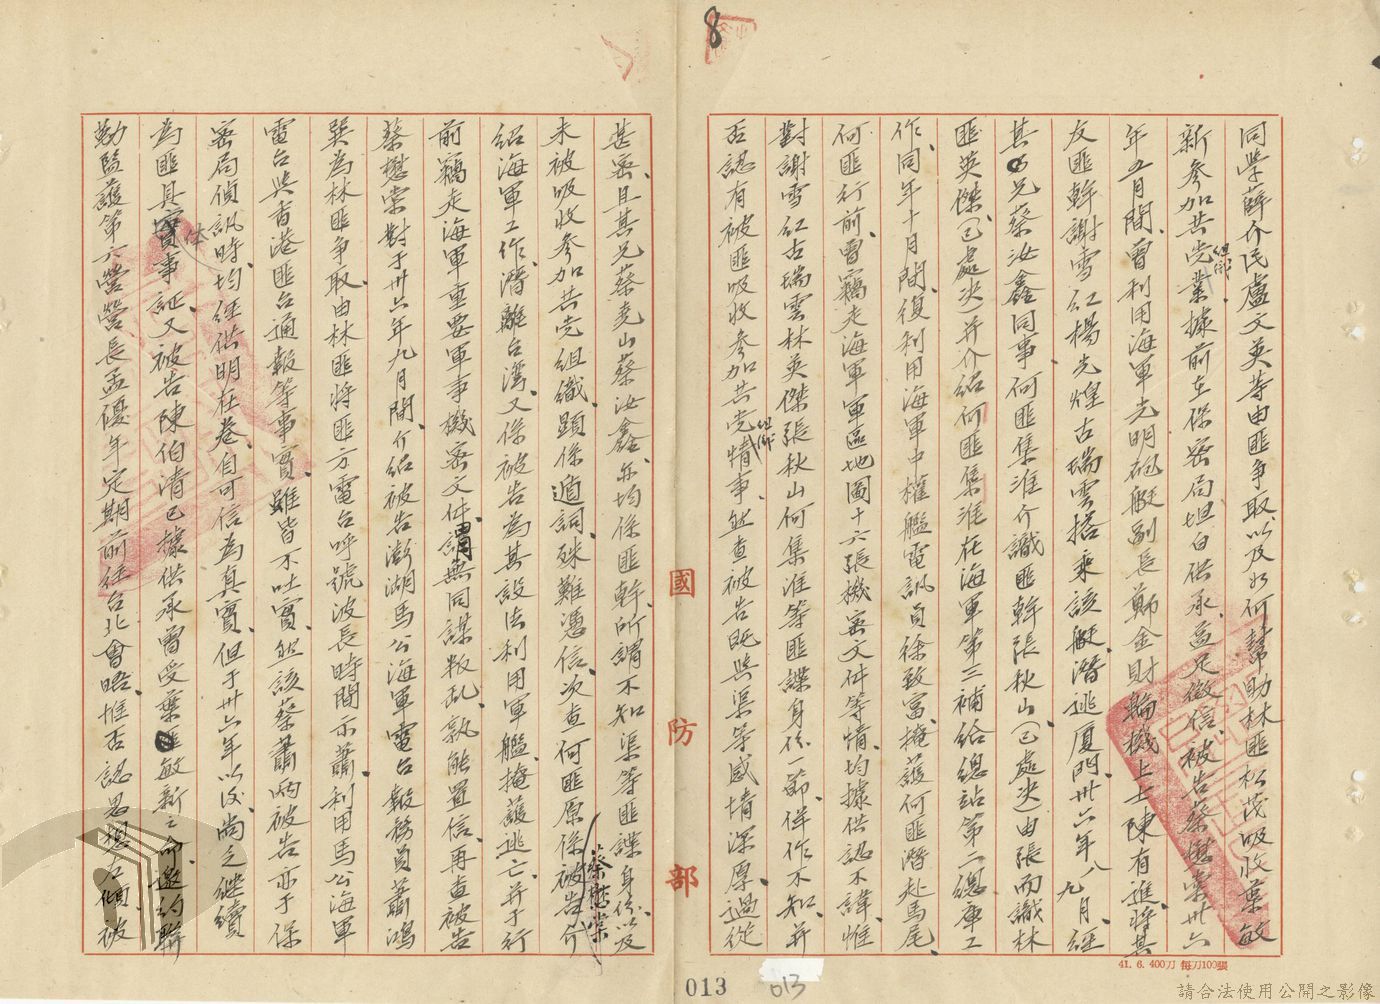 8
同學薛介民盧文英等由匪爭取以及如何幫助林匪松茂吸收葉敏
新參加共党組織業據前在保密局坦白供承益足徵信被告蔡懋棠卅六
年五月間曾利用海軍光明砲艇副長鄭金財輪機上士陳有進將其
友匪幹謝雪紅楊克煌古瑞雲搭乘該艇潛逃廈門卅六年八九月經
其兄蔡汝鑫同事何匪集淮介識匪幹張秋山(已處決)由張而識林
匪英傑(已處決)并介紹何匪集淮在海軍第三補給總站第二總庫工
作同年十月間復利用海軍中權艦電訊員徐致富掩護何匪潛赴馬尾
何匪行前曾竊走海軍軍區地圖十六張機密文件等情均據供認不諱惟
對謝雪紅古瑞雲林英傑張秋山何集淮等匪諜身份一節佯作不知并
否認有被匪吸收參加共党組織情事然查被告既與渠等感情深厚過從
甚密且其兄蔡堯山蔡汝鑫亦均係匪幹所謂不知渠等匪諜身份以及
未被吸收參加共党組織顯係遁詞殊難憑信次查何匪原係被告蔡懋棠介
紹海軍工作潛離台灣又係被告為其設法利用軍艦掩護逃亡并于行
前竊走海軍重要軍事機密文件謂無同謀叛乱孰能置信再查被告
蔡懋棠對于卅六年九月間介紹被告澎湖馬公海軍電台報務員蕭鴻
巽為林匪爭取由林匪將匪方電台呼號波長時間示蕭利用馬公海軍
電台與香港匪台通報等事實雖皆不吐實然該蔡蕭兩被告亦于保
密局偵訊時均經供明在卷自可信為真實但于卅六年以後尚乏繼續
為匪具体事証又被告陳伯清已據供承曾受葉匪敏新之命邀約聯
勤監護第六營營長孟優年定期前往台北會晤惟否認思想左傾被
國防部
41. 6. 400刀 每刀100張
013
013
請合法使用公開之影像